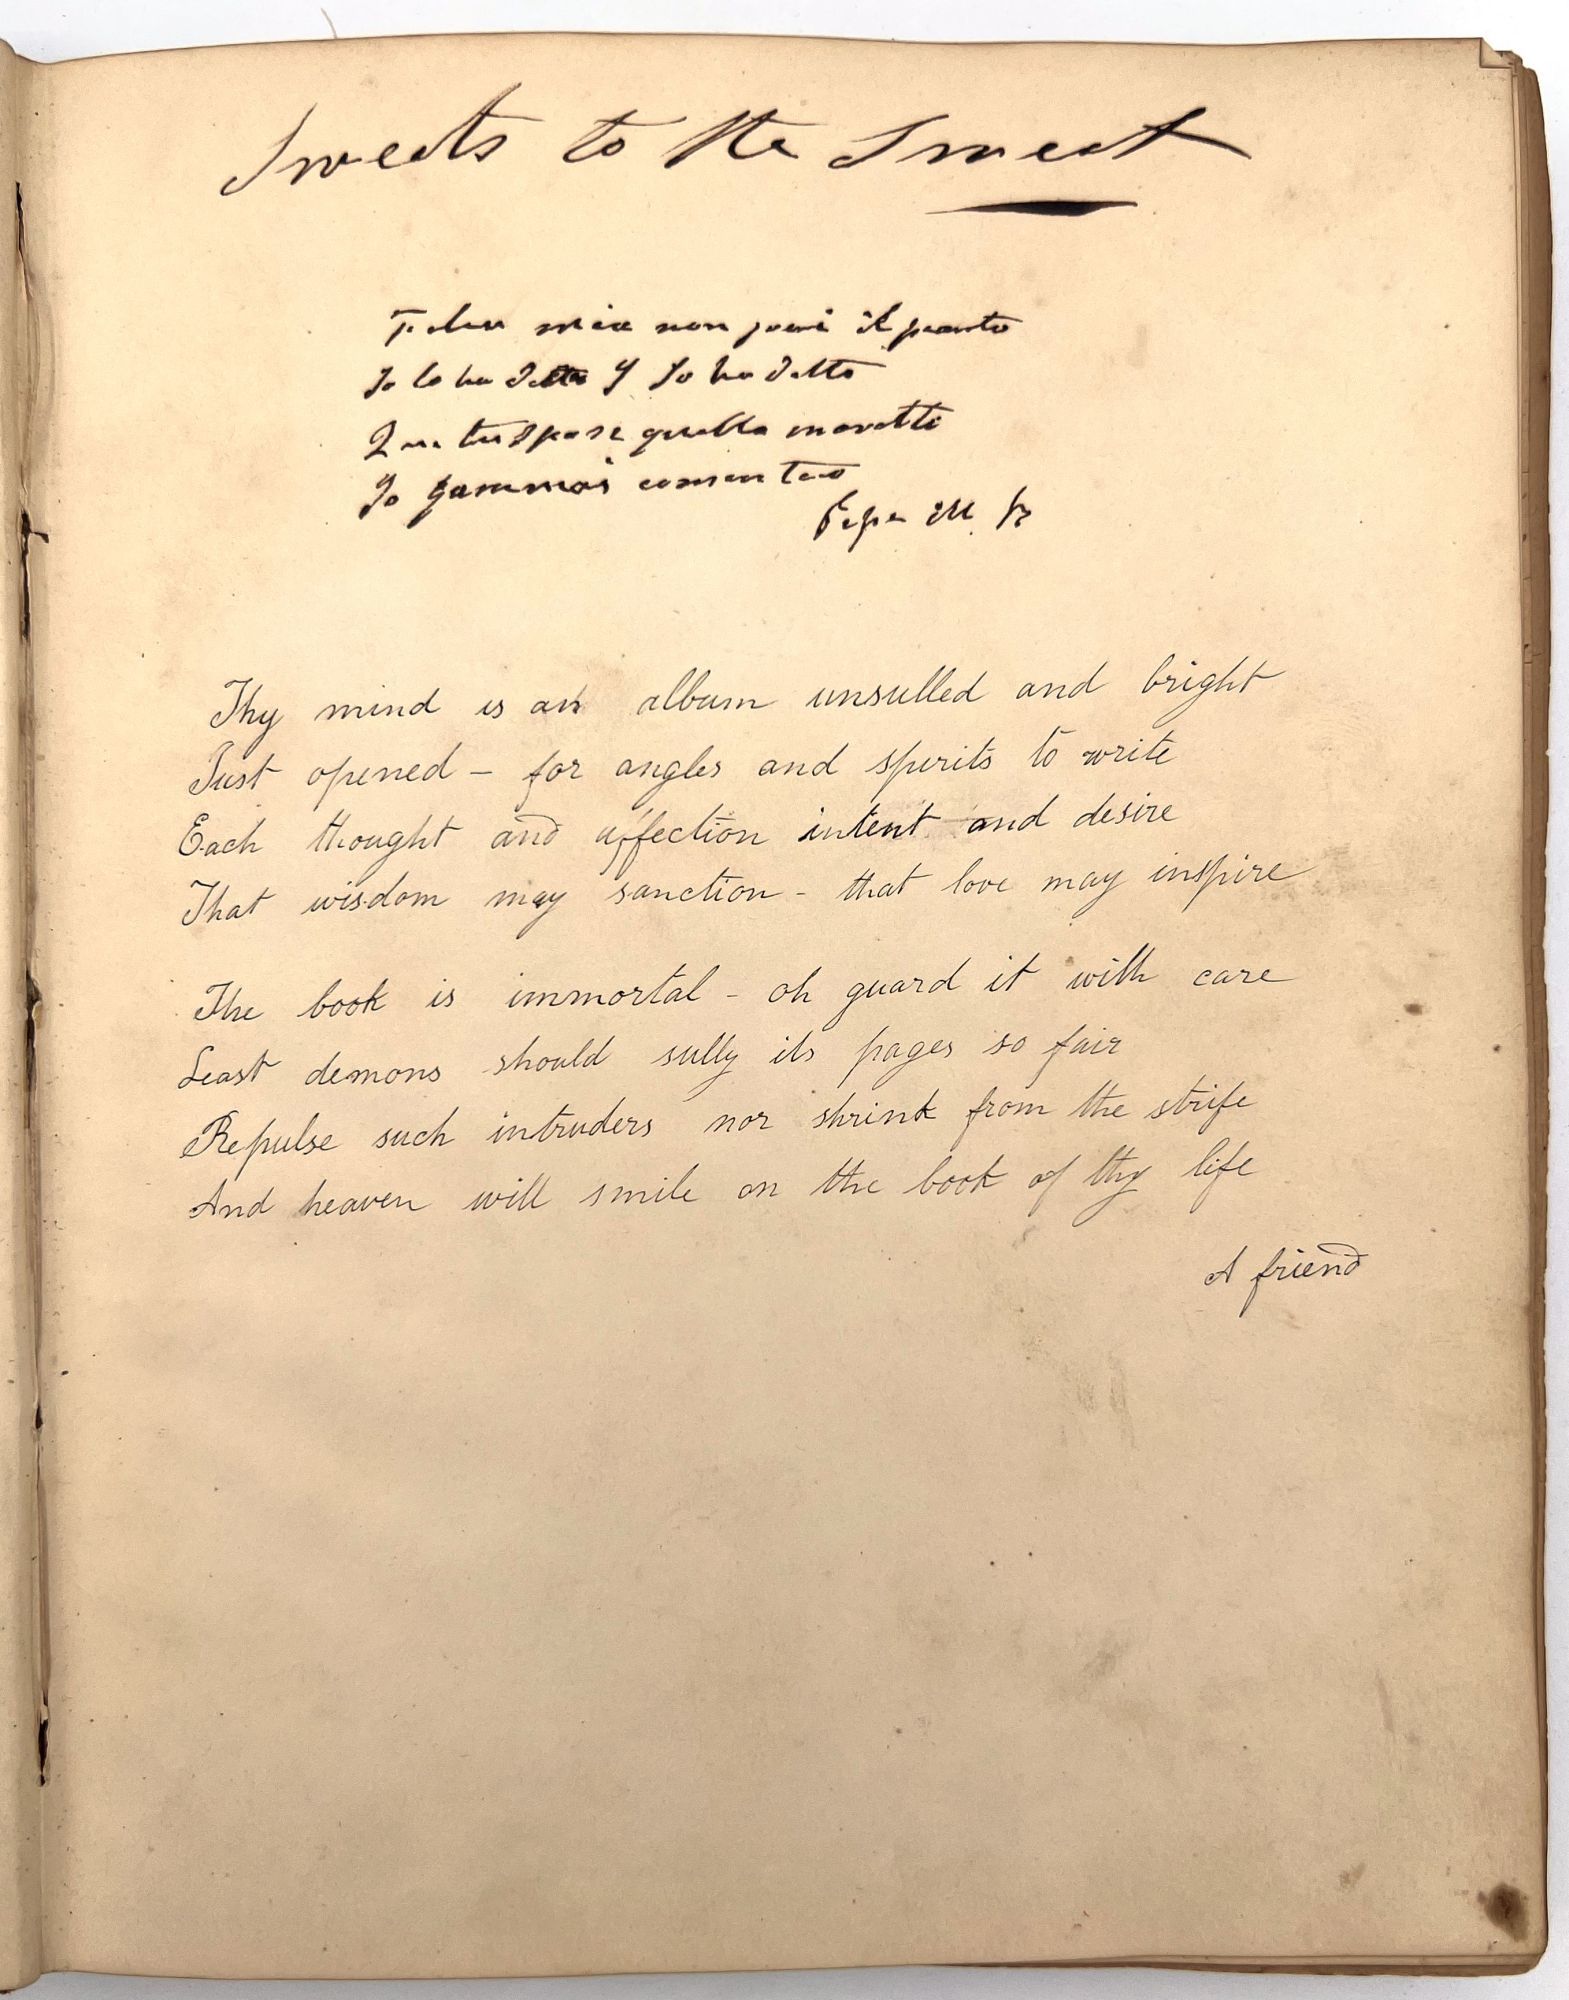 Sweets to the Sweet
mia non il pianto
Io lo ho detto y Io ho detto
spose quella
Io gammai
Pepe M.
Thy mind is an album unsulled and bright
Just opened – for angles and spirits to write
Each thought and affection intent and desire
That wisdom may sanction – that love may inspire
The book is immortal – oh guard it with care
Least demons should sully its pages so fair
Repulse such intruders nor shrink from the strife
And heaven will smile on the book of thy life
A friend